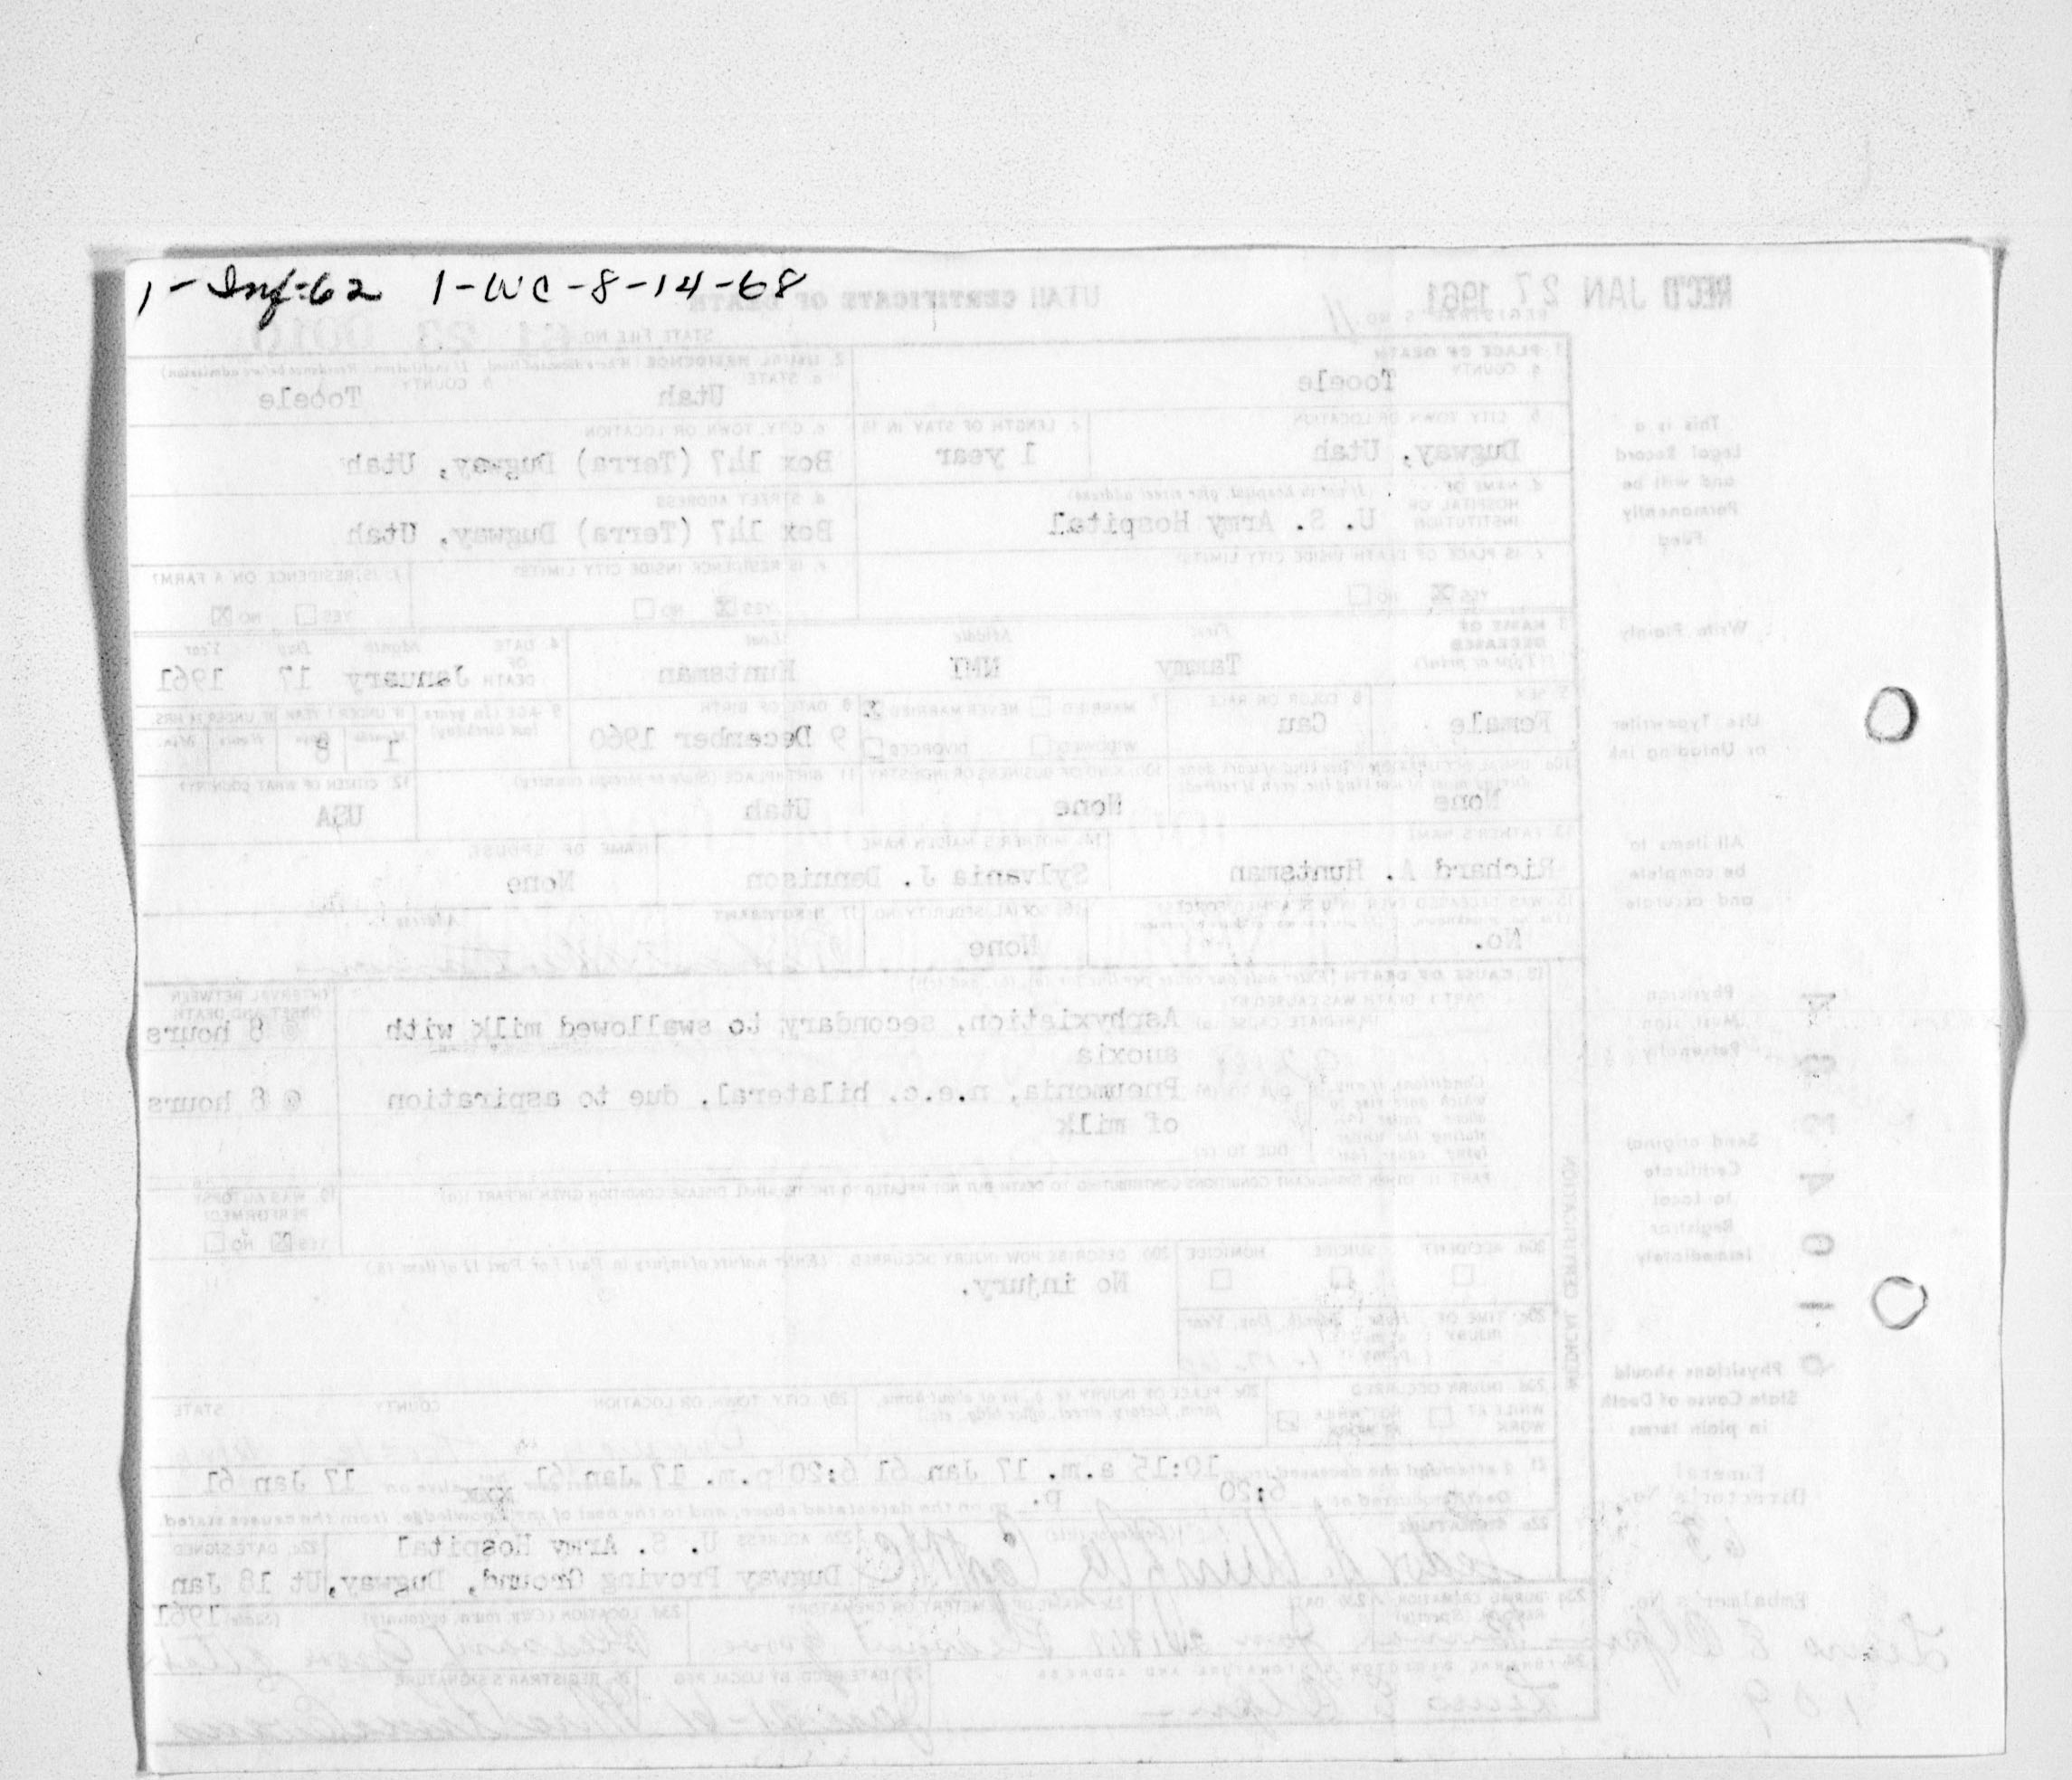 1-Inf-62 1-WC-8-14-68
REC'D JAN 27 1961
UTAH CERTIFICATE OF DEATH
REGISTRAR'S NO. 11
STATE FILE NO. 61 23 0010
1. PLACE OF DEATH
a. COUNTY
Tooele
2. USUAL RESIDENCE (Where deceased lived. If institution: Residence before admission)
a. STATE Utah b. COUNTY Tooele
b. CITY, TOWN OR LOCATION
Dugway, Utah
c. LENGTH OF STAY IN 1b
1 year
c. CITY, TOWN OR LOCATION
Box 147 (Terra) Dugway, Utah
d. NAME OF HOSPITAL OR INSTITUTION (If not in hospital, give street address)
U. S. Army Hospital
d. STREET ADDRESS
Box 147 (Terra) Dugway, Utah
e. IS PLACE OF DEATH INSIDE CITY LIMITS?
YES X NO
e. IS RESIDENCE INSIDE CITY LIMITS?
YES X NO
f. IS RESIDENCE ON A FARM?
YES NO X
3. NAME OF DECEASED (Type or print)
First Middle Last
Tammy NMI Huntsman
4. DATE OF DEATH Month Day Year
January 17 1961
5. SEX
Female
6. COLOR OR RACE
Cau
7. MARRIED NEVER MARRIED X
WIDOWED DIVORCED
8. DATE OF BIRTH
9 December 1960
9. AGE (In years last birthday)
IF UNDER 1 YEAR IF UNDER 24 HRS.
Months Days Hours Min.
1 8
10a. USUAL OCCUPATION (Give kind of work done during most of working life, even if retired)
None
10b. KIND OF BUSINESS OR INDUSTRY
None
11. BIRTHPLACE (State or foreign country)
Utah
12. CITIZEN OF WHAT COUNTRY?
USA
13. FATHER'S NAME
Richard A. Huntsman
14. MOTHER'S MAIDEN NAME
Sylvania J. Dennison
NAME OF SPOUSE
None
15. WAS DECEASED EVER IN U. S. ARMED FORCES?
No.
16. SOCIAL SECURITY NO.
None
17. INFORMANT Address
18. CAUSE OF DEATH [Enter only one cause per line for (a), (b), and (c)]
PART I. DEATH WAS CAUSED BY:
IMMEDIATE CAUSE (a)
Asphyxiation, secondary to swallowed milk with
anoxia
INTERVAL BETWEEN ONSET AND DEATH
@ 8 hours
Conditions, if any, which gave rise to above cause (a), stating the underlying cause last.
DUE TO (b)
Pneumonia, n.e.c. bilateral, due to aspiration
of milk
@ 8 hours
DUE TO (c)
PART II. OTHER SIGNIFICANT CONDITIONS CONTRIBUTING TO DEATH BUT NOT RELATED TO THE TERMINAL DISEASE CONDITION GIVEN IN PART I (a)
19. WAS AUTOPSY PERFORMED?
YES X NO
20a. ACCIDENT SUICIDE HOMICIDE
20b. DESCRIBE HOW INJURY OCCURRED. (Enter nature of injury in Part I or Part II of item 18)
No injury.
20c. TIME OF INJURY Hour Month, Day, Year
a.m.
p.m.
20d. INJURY OCCURRED
WHILE AT WORK NOT WHILE AT WORK
20e. PLACE OF INJURY (e. g., in or about home, farm, factory, street, office bldg., etc.)
20f. CITY, TOWN, OR LOCATION COUNTY STATE
21. I attended the deceased from 10:15 a.m. 17 Jan 61 6:20 p.m. 17 Jan 61 alive on 17 Jan 61
Death occurred at 6:20 p. m on the date stated above; and to the best of my knowledge, from the causes stated.
22a. SIGNATURE
22b. ADDRESS
U. S. Army Hospital
Dugway Proving Ground, Dugway, Ut
22c. DATE SIGNED
18 Jan
1961
23a. BURIAL, CREMATION, REMOVAL (Specify)
Burial
23b. DATE
Jan 1961
23c. NAME OF CEMETERY OR CREMATORY
Pleasant Grove
23d. LOCATION (City, town, or county) (State)
Pleasant Grove Utah
24. FUNERAL DIRECTOR'S SIGNATURE AND ADDRESS
25. DATE REC'D. BY LOCAL REG.
26. REGISTRAR'S SIGNATURE
MEDICAL CERTIFICATION
This is a
Legal Record
and will be
Permanently
Filed
Write Plainly
Use Typewriter
or Unfading ink
All items to
be complete
and accurate
Physician
Must sign
Personally
Send original
Certificate
to Local
Registrar
Immediately
Physicians should
State Cause of Death
in plain terms
Funeral
Director's No.
63
Embalmer's No.
109